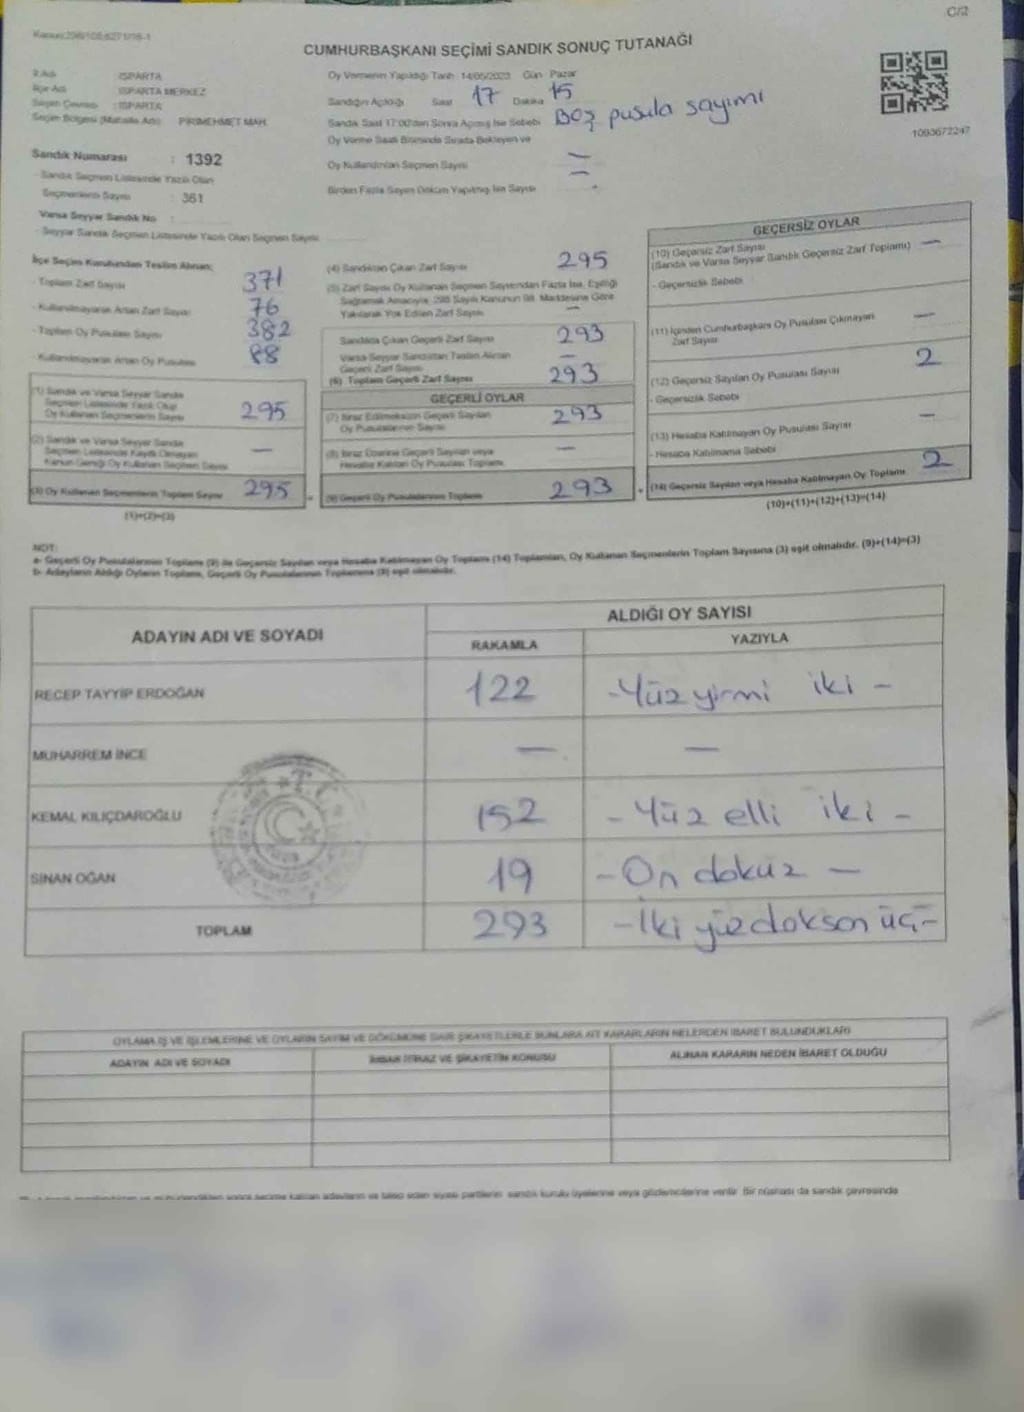 C/2
CUMHURBAŞKANI SEÇİMİ SANDIK SONUÇ TUTANAĞI
İl Adı : ISPARTA
İlçe Adı : ISPARTA MERKEZ
Seçim Çevresi : ISPARTA
Seçim Bölgesi (Mahalle Adı) : PİRİMEHMET MAH.
Oy Vermenin Yapıldığı Tarih : 14/05/2023 Gün : Pazar
Sandığın Açıldığı Saat 17 Dakika 15
Sandık Saat 17:00'den Sonra Açılmış İse Sebebi Boş pusula sayımı
Oy Verme Saati Bitiminde Sırada Bekleyen ve
Oy Kullandırılan Seçmen Sayısı —
Birden Fazla Sayım Döküm Yapılmış İse Sayısı —
1093672247
Sandık Numarası : 1392
- Sandık Seçmen Listesinde Yazılı Olan
Seçmenlerin Sayısı : 361
Varsa Seyyar Sandık No :
- Seyyar Sandık Seçmen Listesinde Yazılı Olan Seçmen Sayısı
İlçe Seçim Kurulundan Teslim Alınan;
- Toplam Zarf Sayısı 371
- Kullanılmayarak Artan Zarf Sayısı 76
- Toplam Oy Pusulası Sayısı 382
- Kullanılmayarak Artan Oy Pusulası 88
(1) Sandık ve Varsa Seyyar Sandık
Seçmen Listesinde Yazılı Olup
Oy Kullanan Seçmenlerin Sayısı 295
(2) Sandık ve Varsa Seyyar Sandık
Seçmen Listesinde Kayıtlı Olmayan
Kanun Gereği Oy Kullanan Seçmen Sayısı —
(3) Oy Kullanan Seçmenlerin Toplam Sayısı 295
(1)+(2)=(3)
(4) Sandıktan Çıkan Zarf Sayısı 295
(5) Zarf Sayısı Oy Kullanan Seçmen Sayısından Fazla İse, Eşitliği
Sağlamak Amacıyla, 298 Sayılı Kanunun 98. Maddesine Göre
Yakılarak Yok Edilen Zarf Sayısı —
Sandıkta Çıkan Geçerli Zarf Sayısı 293
Varsa Seyyar Sandıktan Teslim Alınan
Geçerli Zarf Sayısı —
(6) Toplam Geçerli Zarf Sayısı 293
GEÇERLİ OYLAR
(7) İtiraz Edilmeksizin Geçerli Sayılan
Oy Pusulalarının Sayısı 293
(8) İtiraz Üzerine Geçerli Sayılan veya
Hesaba Katılan Oy Pusulası Toplamı —
(9) Geçerli Oy Pusulalarının Toplamı 293
GEÇERSİZ OYLAR
(10) Geçersiz Zarf Sayısı —
(Sandık ve Varsa Seyyar Sandık Geçersiz Zarf Toplamı)
- Geçersizlik Sebebi
(11) İçinden Cumhurbaşkanı Oy Pusulası Çıkmayan
Zarf Sayısı —
(12) Geçersiz Sayılan Oy Pusulası Sayısı 2
- Geçersizlik Sebebi
(13) Hesaba Katılmayan Oy Pusulası Sayısı —
- Hesaba Katılmama Sebebi
(14) Geçersiz Sayılan veya Hesaba Katılmayan Oy Toplamı 2
(10)+(11)+(12)+(13)=(14)
NOT:
a- Geçerli Oy Pusulalarının Toplamı (9) ile Geçersiz Sayılan veya Hesaba Katılmayan Oy Toplamı (14) Toplamları, Oy Kullanan Seçmenlerin Toplam Sayısına (3) eşit olmalıdır. (9)+(14)=(3)
b- Adayların Aldığı Oyların Toplamı, Geçerli Oy Pusulalarının Toplamına (9) eşit olmalıdır.
ADAYIN ADI VE SOYADI
ALDIĞI OY SAYISI
RAKAMLA YAZIYLA
RECEP TAYYİP ERDOĞAN 122 -Yüz yirmi iki -
MUHARREM İNCE — —
KEMAL KILIÇDAROĞLU 152 - Yüz elli iki -
SİNAN OĞAN 19 -On dokuz —
TOPLAM 293 -İki yüz doksan üç-
T.C.
OYLAMA İŞ VE İŞLEMLERİNE VE OYLARIN SAYIM VE DÖKÜMÜNE DAİR ŞİKAYETLERLE BUNLARA AİT KARARLARIN NELERDEN İBARET BULUNDUKLARI
ADAYIN ADI VE SOYADI
İTİRAZ VE ŞİKAYETİN KONUSU
ALINAN KARARIN NEDEN İBARET OLDUĞU
sonra seçime katılan adayların ve talep eden siyasi partilerin sandık kurulu üyelerine veya gözlemcilerine verilir. Bir nüshası da sandık çevresinde